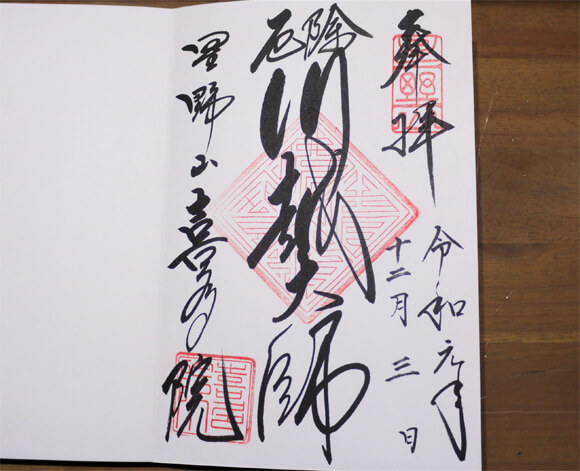 奉拝
令和元年
十二月三日
厄除
川越大師
星野山喜多院